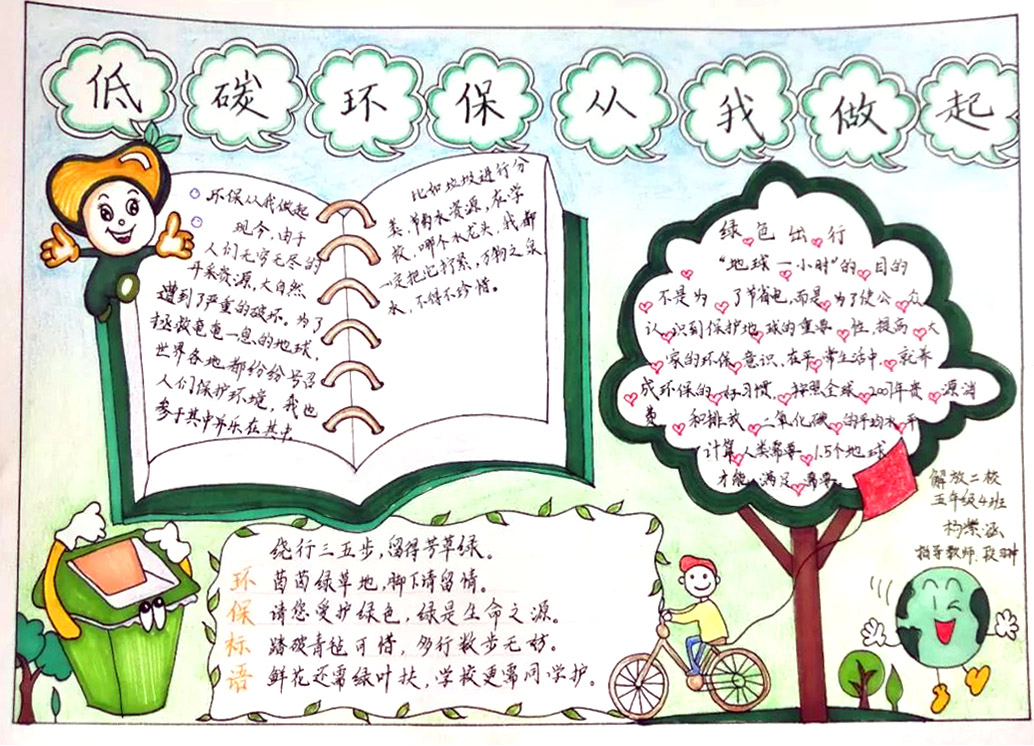 低碳环保从我做起
环保从我做起
现今,由于
人们无穷无尽的
开采资源,大自然
遭到了严重的破坏。为了
拯救奄奄一息的地球,
世界各地都纷纷号召
人们保护环境,我也
参于其中并乐在其中
比如垃圾进行分
类,节约水资源,在学
校,哪个水龙头,我都
一定把它拧紧,万物之泉
水,不得不珍惜。
绿色出行
“地球一小时”的目的
不是为了节省电,而是为了使公众
认识到保护地球的重要性,提高大
家的环保意识、在平常生活中,就养
成环保的好习惯,按照全球2007年资源消
费和排放二氧化碳的平均水平
计算人类需要1.5个地球
才能满足需要。
解放二校
五年级4班
指导教师:段翀
环保标语
绕行三五步,留得芳草绿。
茵茵绿草地,脚下请留情。
请您爱护绿色,绿是生命之源。
踏破青毡可惜,多行数步无妨。
鲜花还需绿叶扶,学校更需同学护。